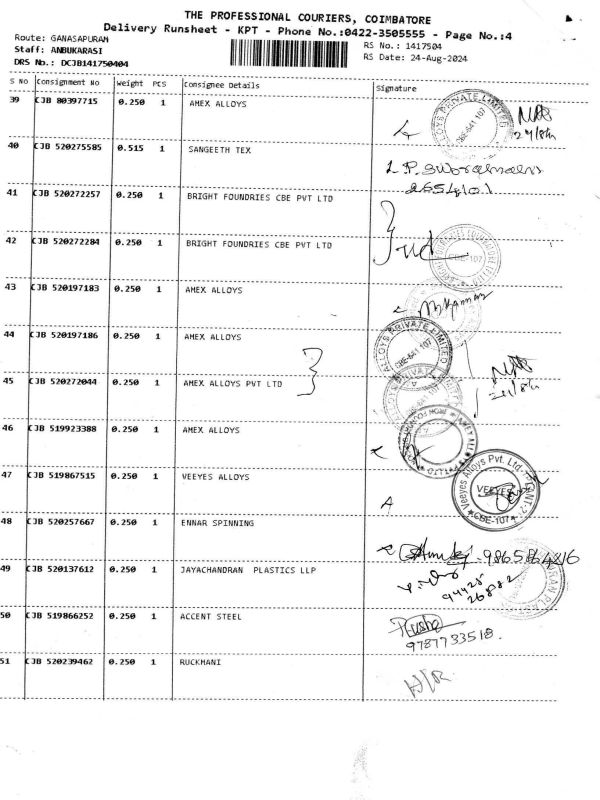 THE PROFESSIONAL COURIERS, COIMBATORE
Delivery Runsheet - KPT - Phone No.:0422-3505555 - Page No.:4
Route: GANASAPURAM
RS No.: 1417504
Staff: ANBUKARASI
RS Date: 24-Aug-2024
DRS No.: DCJB141750404
S No Consignment No Weight PCS Consignee Details Signature
39 CJB 80397715 0.250 1 AMEX ALLOYS
40 CJB 520275585 0.515 1 SANGEETH TEX
41 CJB 520272257 0.250 1 BRIGHT FOUNDRIES CBE PVT LTD
42 CJB 520272284 0.250 1 BRIGHT FOUNDRIES CBE PVT LTD
43 CJB 520197183 0.250 1 AMEX ALLOYS
44 CJB 520197186 0.250 1 AMEX ALLOYS
45 CJB 520272044 0.250 1 AMEX ALLOYS PVT LTD
46 CJB 519923388 0.250 1 AMEX ALLOYS
47 CJB 519867515 0.250 1 VEEYES ALLOYS
Veeyes Alloys Pvt. Ltd
VEEYES
CBE-107
48 CJB 520257667 0.250 1 ENNAR SPINNING
49 CJB 520137612 0.250 1 JAYACHANDRAN PLASTICS LLP
94425
26882
50 CJB 519866252 0.250 1 ACCENT STEEL
9787733518.
51 CJB 520239462 0.250 1 RUCKMANI